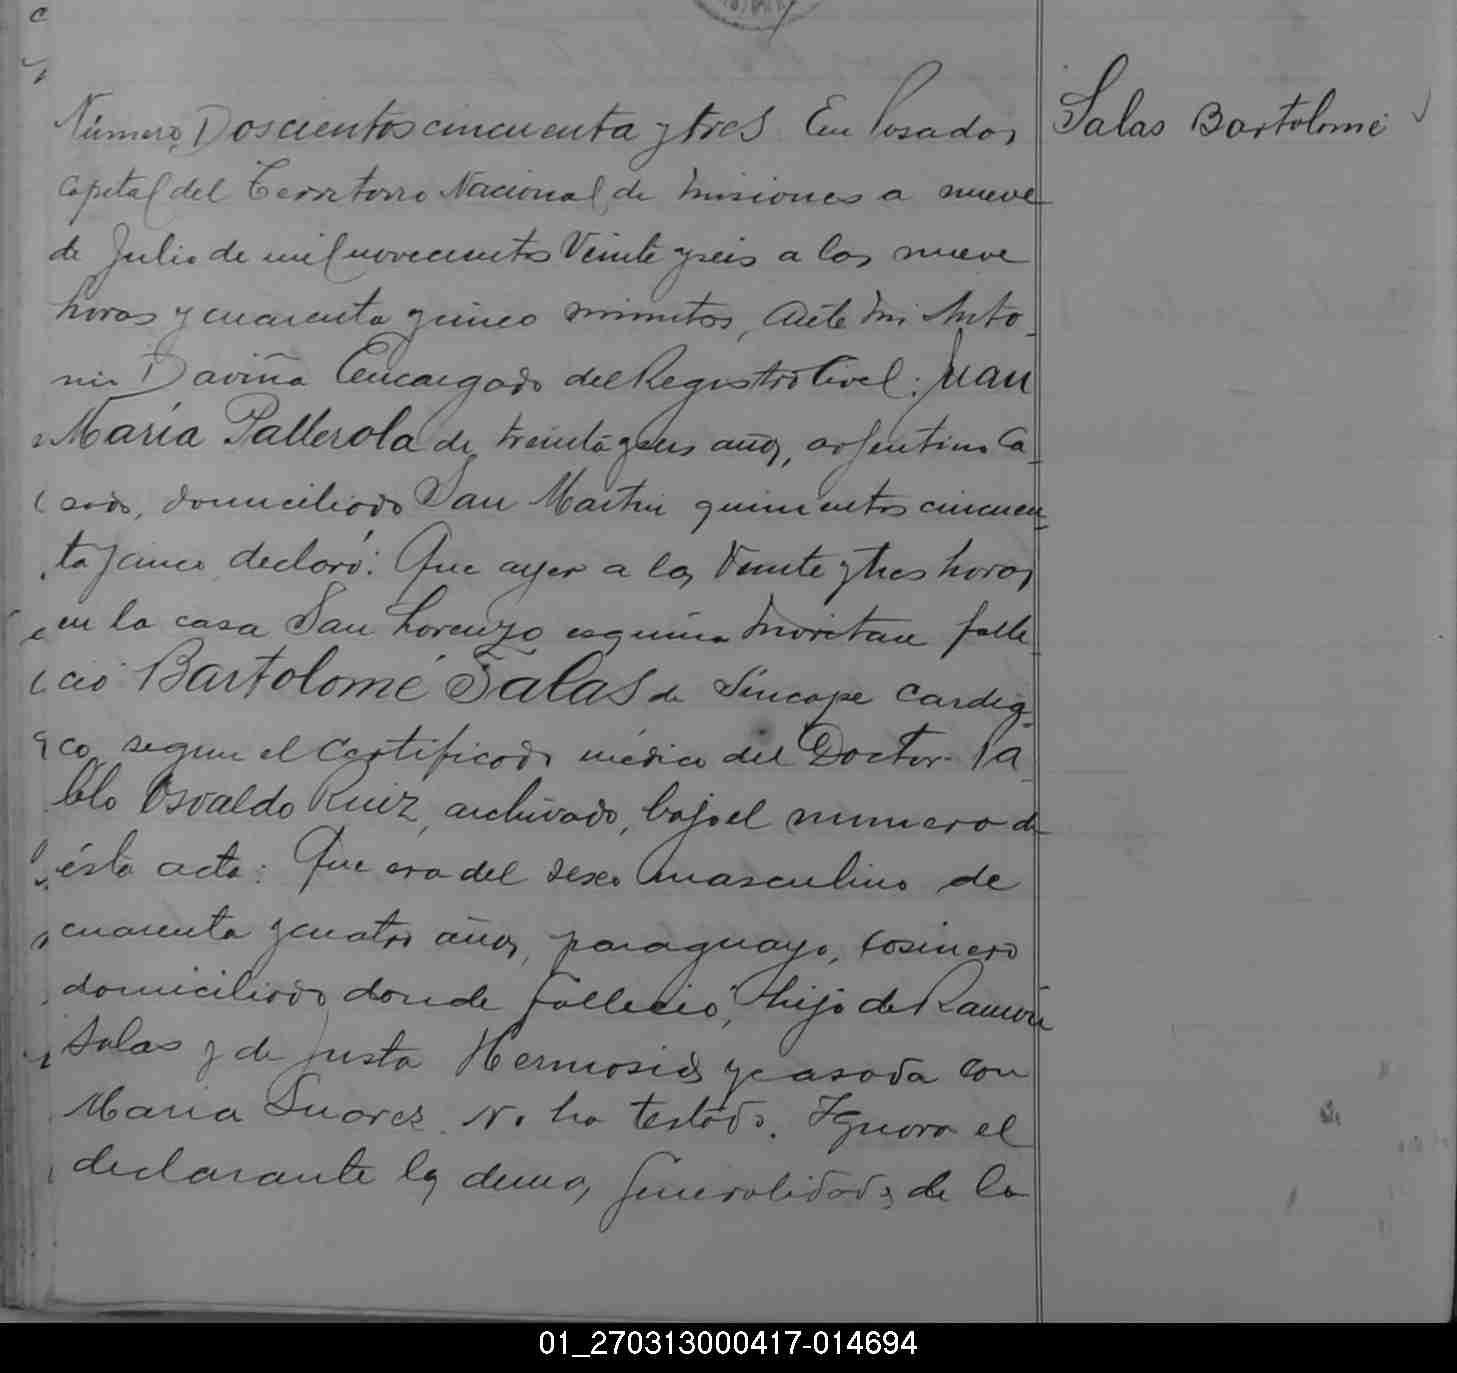 Salas Bartolomé
Número Doscientos cincuenta y tres En Posadas
Capital del Territorio Nacional de Misiones a nueve
de Julio de mil novecientos Veinte y seis a las nueve
horas y cuarenta y cinco minutos, Ante mi Anto_
nio Daviña Encargado del Registro Civil: Juan
María Pallerola de treinta y seis años, argentino Ca_
sado, domiciliado San Martin quinientos cincuen_
ta y cinco declaró: Que ayer a las Veinte y tres horas
en la casa San Lorenzo esquina falle_
ció Bartolomé Salas de Síncope Cardia_
co, segun el Certificado médico del Doctor Pa_
blo Osvaldo Ruiz, archivado, bajo el numero de
ésta acta: Que era del sexo masculino de
cuarenta y cuatro años, paraguayo, cosinero
domiciliado donde falleció, hijo de Ramón
Salas y de Justa Hermosid y casada con
Maria Suarez. No ha testado. Ignora el
declarante las demas generalidades de la
01_270313000417-014694